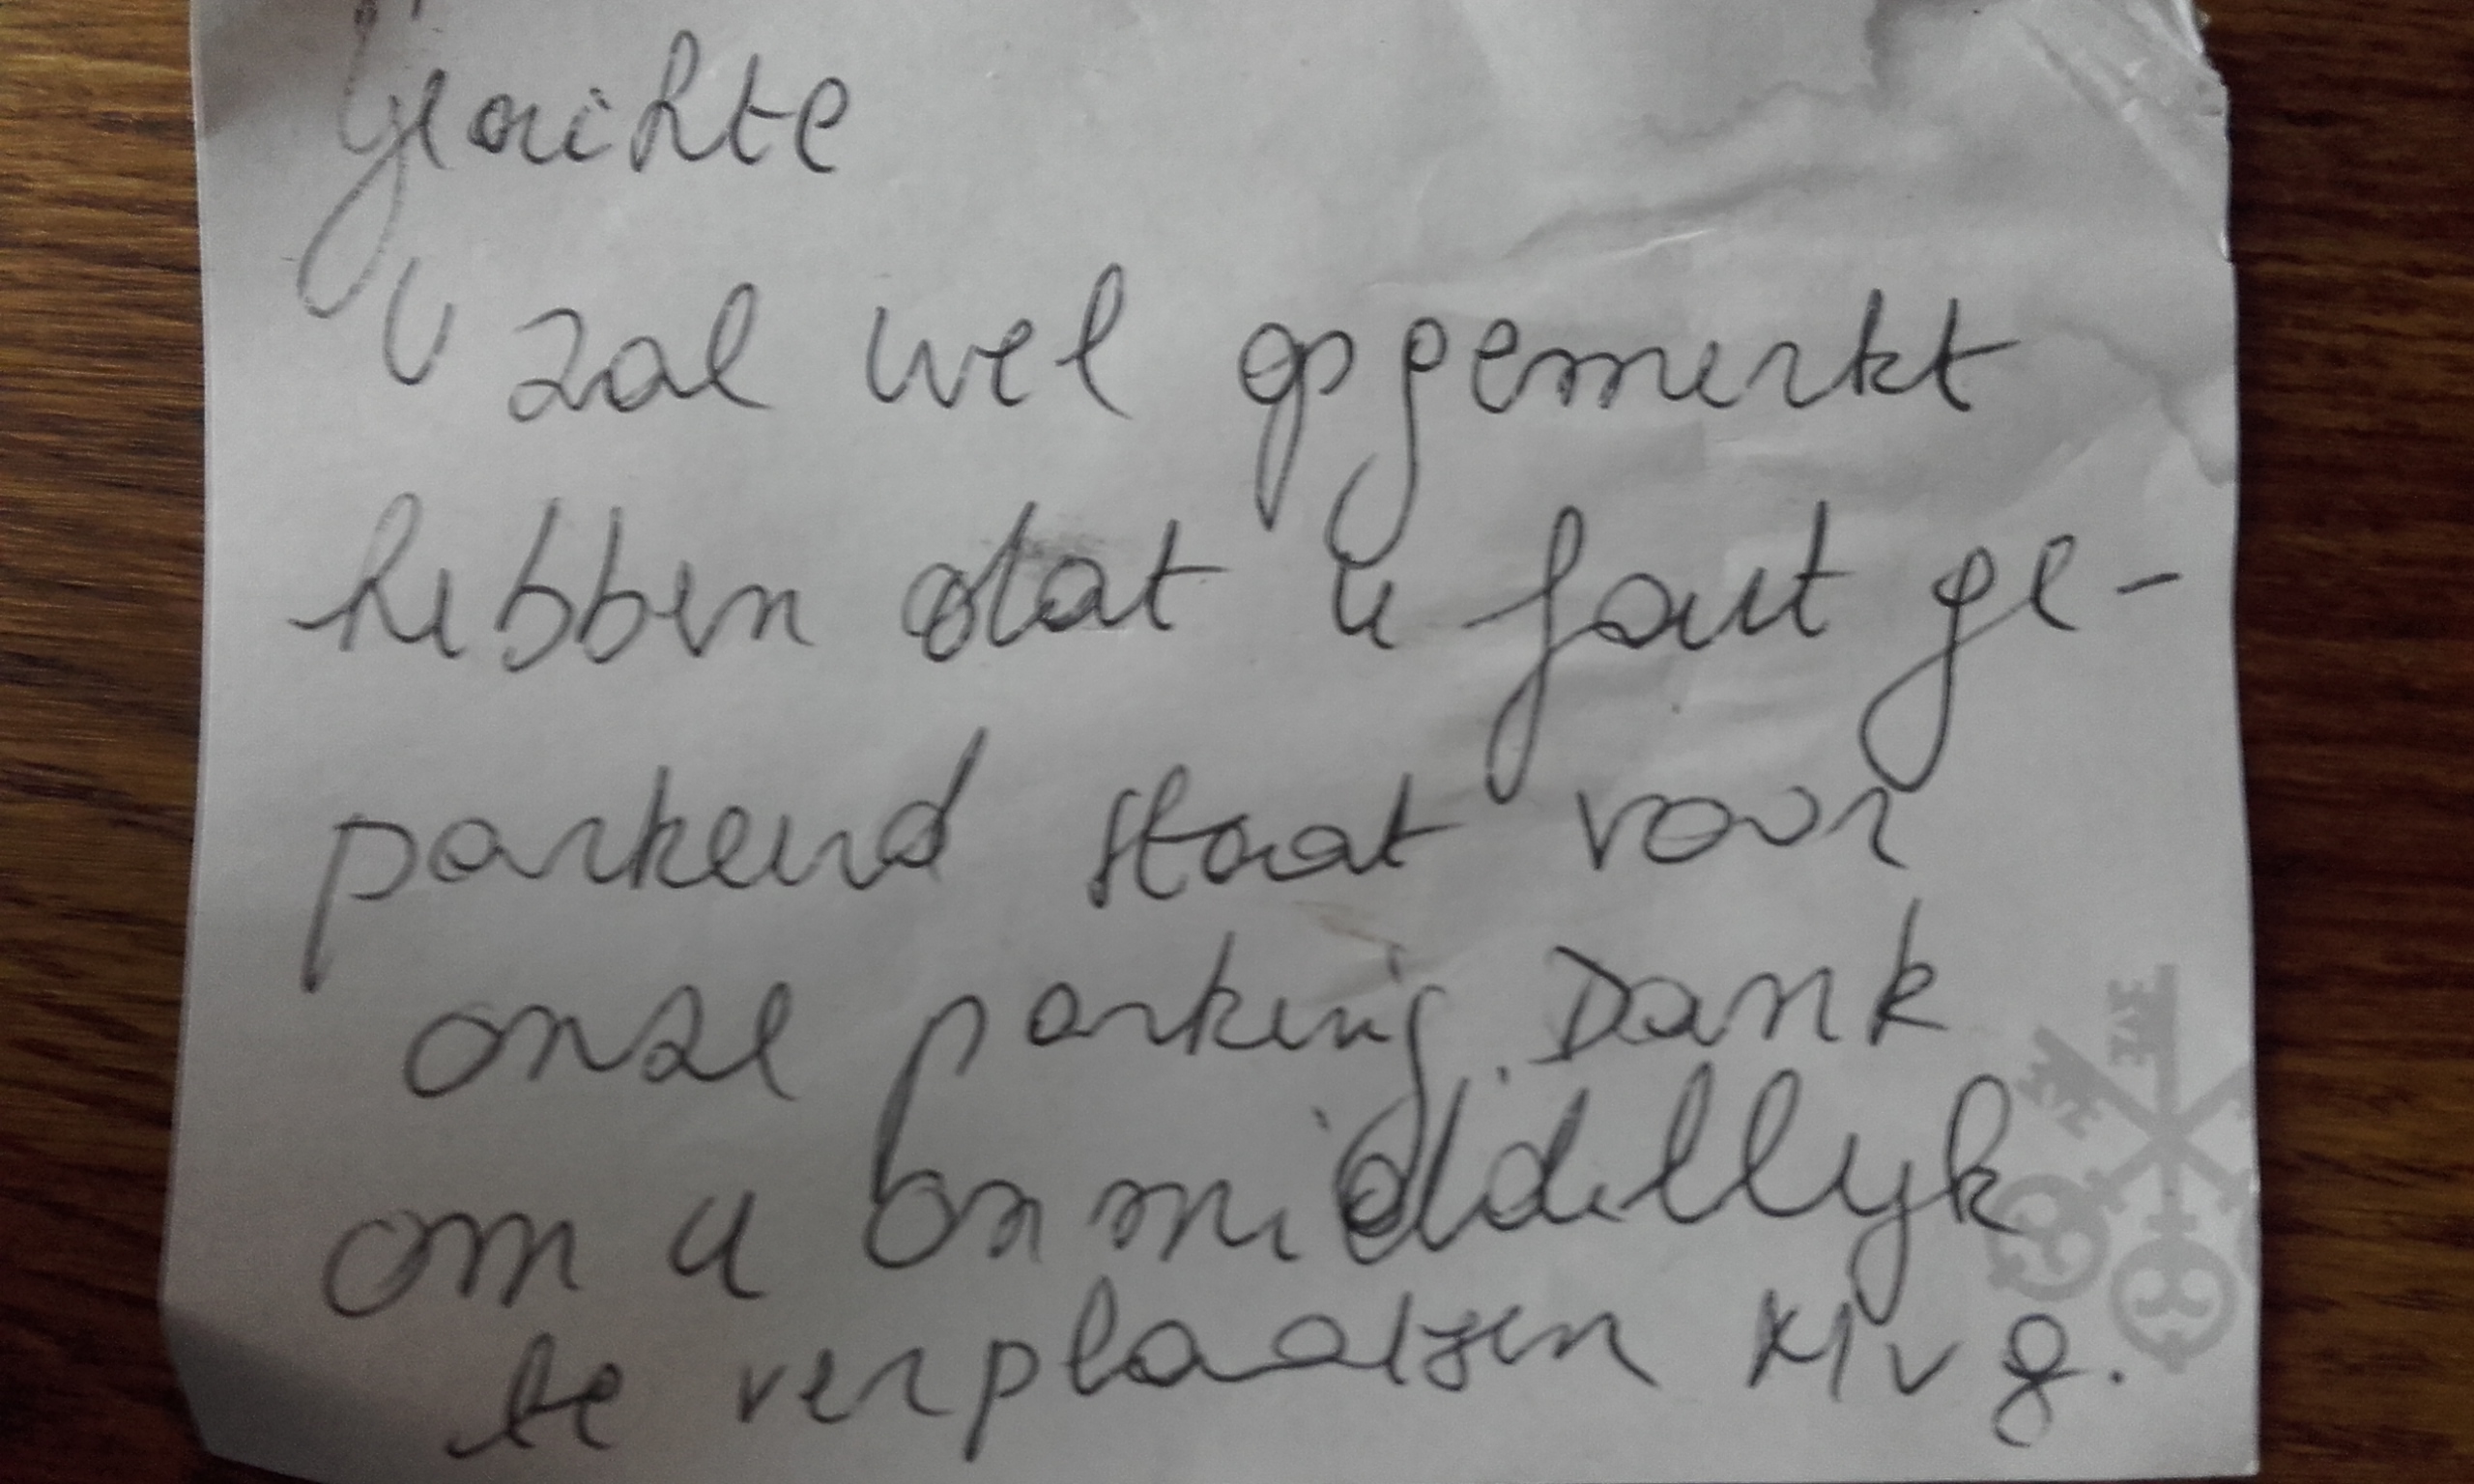 Geachte
U zal wel opgemerkt
hebben dat u fout ge-
parkeerd staat voor
onze parking. Dank
om u onmiddellyk
te verplaatsen Mvg.